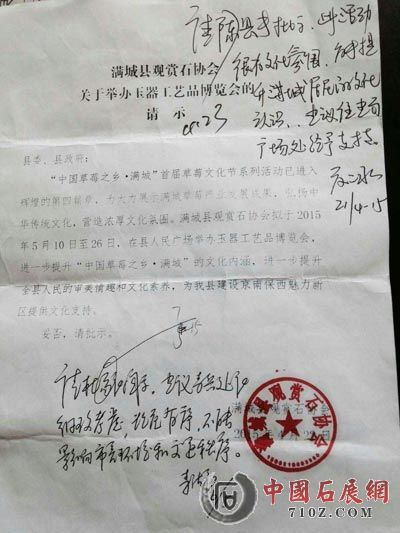 满城县观赏石协会
关于举办玉器工艺品博览会的
请 示
县委、县政府：
“中国草莓之乡·满城”首届草莓文化节系列活动已进入
辉煌的第四篇章，为大力展示满城草莓产业发展成果，弘扬中
华传统文化，营造浓厚文化氛围。满城县观赏石协会拟于 2015
年 5 月 10 日至 26 日，在县人民广场举办玉器工艺品博览会，
进一步提升“中国草莓之乡·满城”的文化内涵，进一步提升
全县人民的审美情趣和文化素养，为我县建设京南保西魅力新
区提供文化支持。
妥否，请批示。
满城县观赏石协会
请陈县长批示，此活动
很有文化氛围，对提
升满城居民的文化
认识，建议在
广场处给予支持
21/4-15
影响市容环境和交通秩序。
满城县观赏石协会
中國石展網
7IOZ.COM